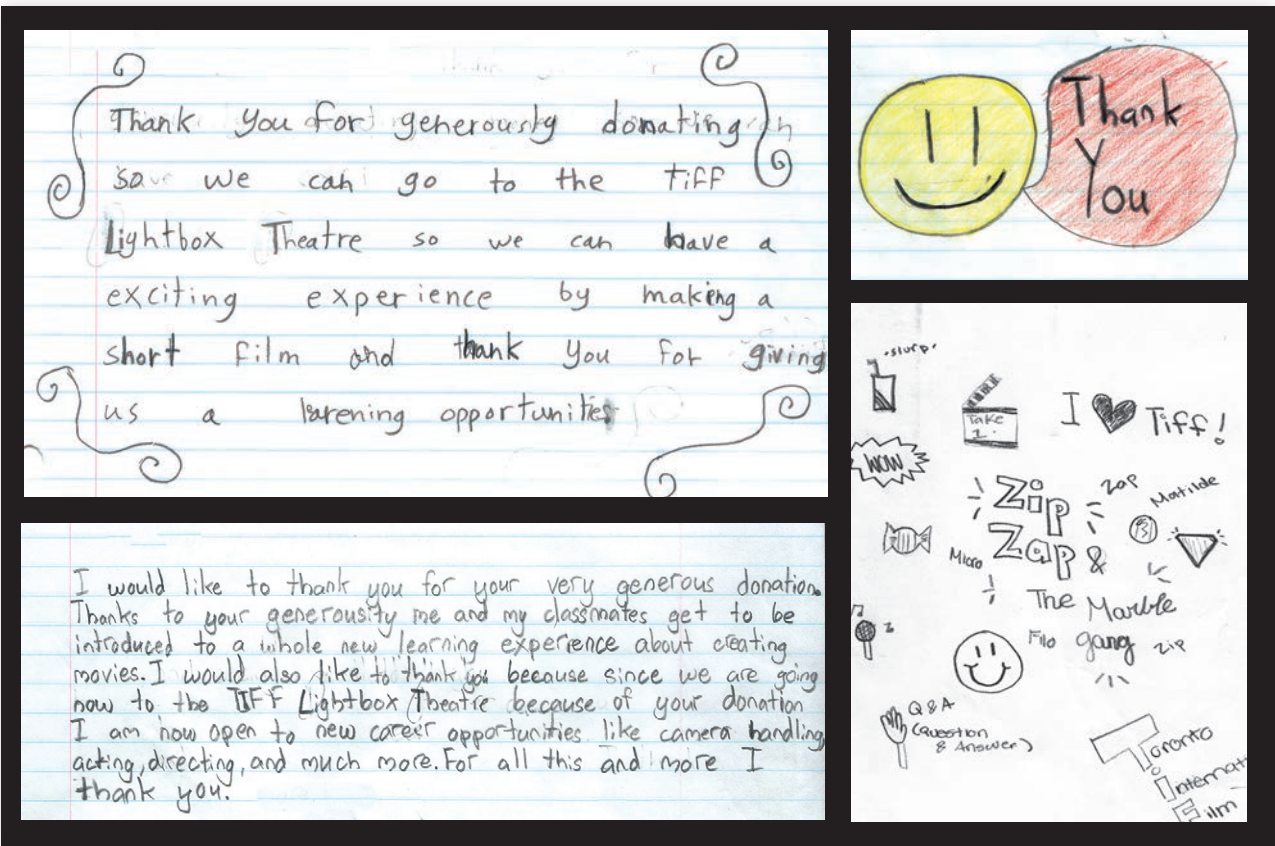 Thank you for generously donating
so we can go to the tiff
Lightbox Theatre so we can have a
exciting experience by making a
short film and thank you for giving
us a larening opportunities
Thank
You
I would like to thank you for your very generous donation.
Thanks to your generousity me and my classmates get to be
introduced to a whole new learning experience about creating
movies. I would also like to thank you because since we are going
now to the TIFF Lightbox Theatre because of your donation
I am now open to new career opportunities like camera handling,
acting, directing, and much more. For all this and more I
thank you.
•slurp•
Take
1
I ♥ Tiff!
WOW
Zip
Zap
Matilde
Zap &
Micro
The Marble
Filo
gang
Zip
Q & A
(Question
& Answer)
Toronto
Internati
Film